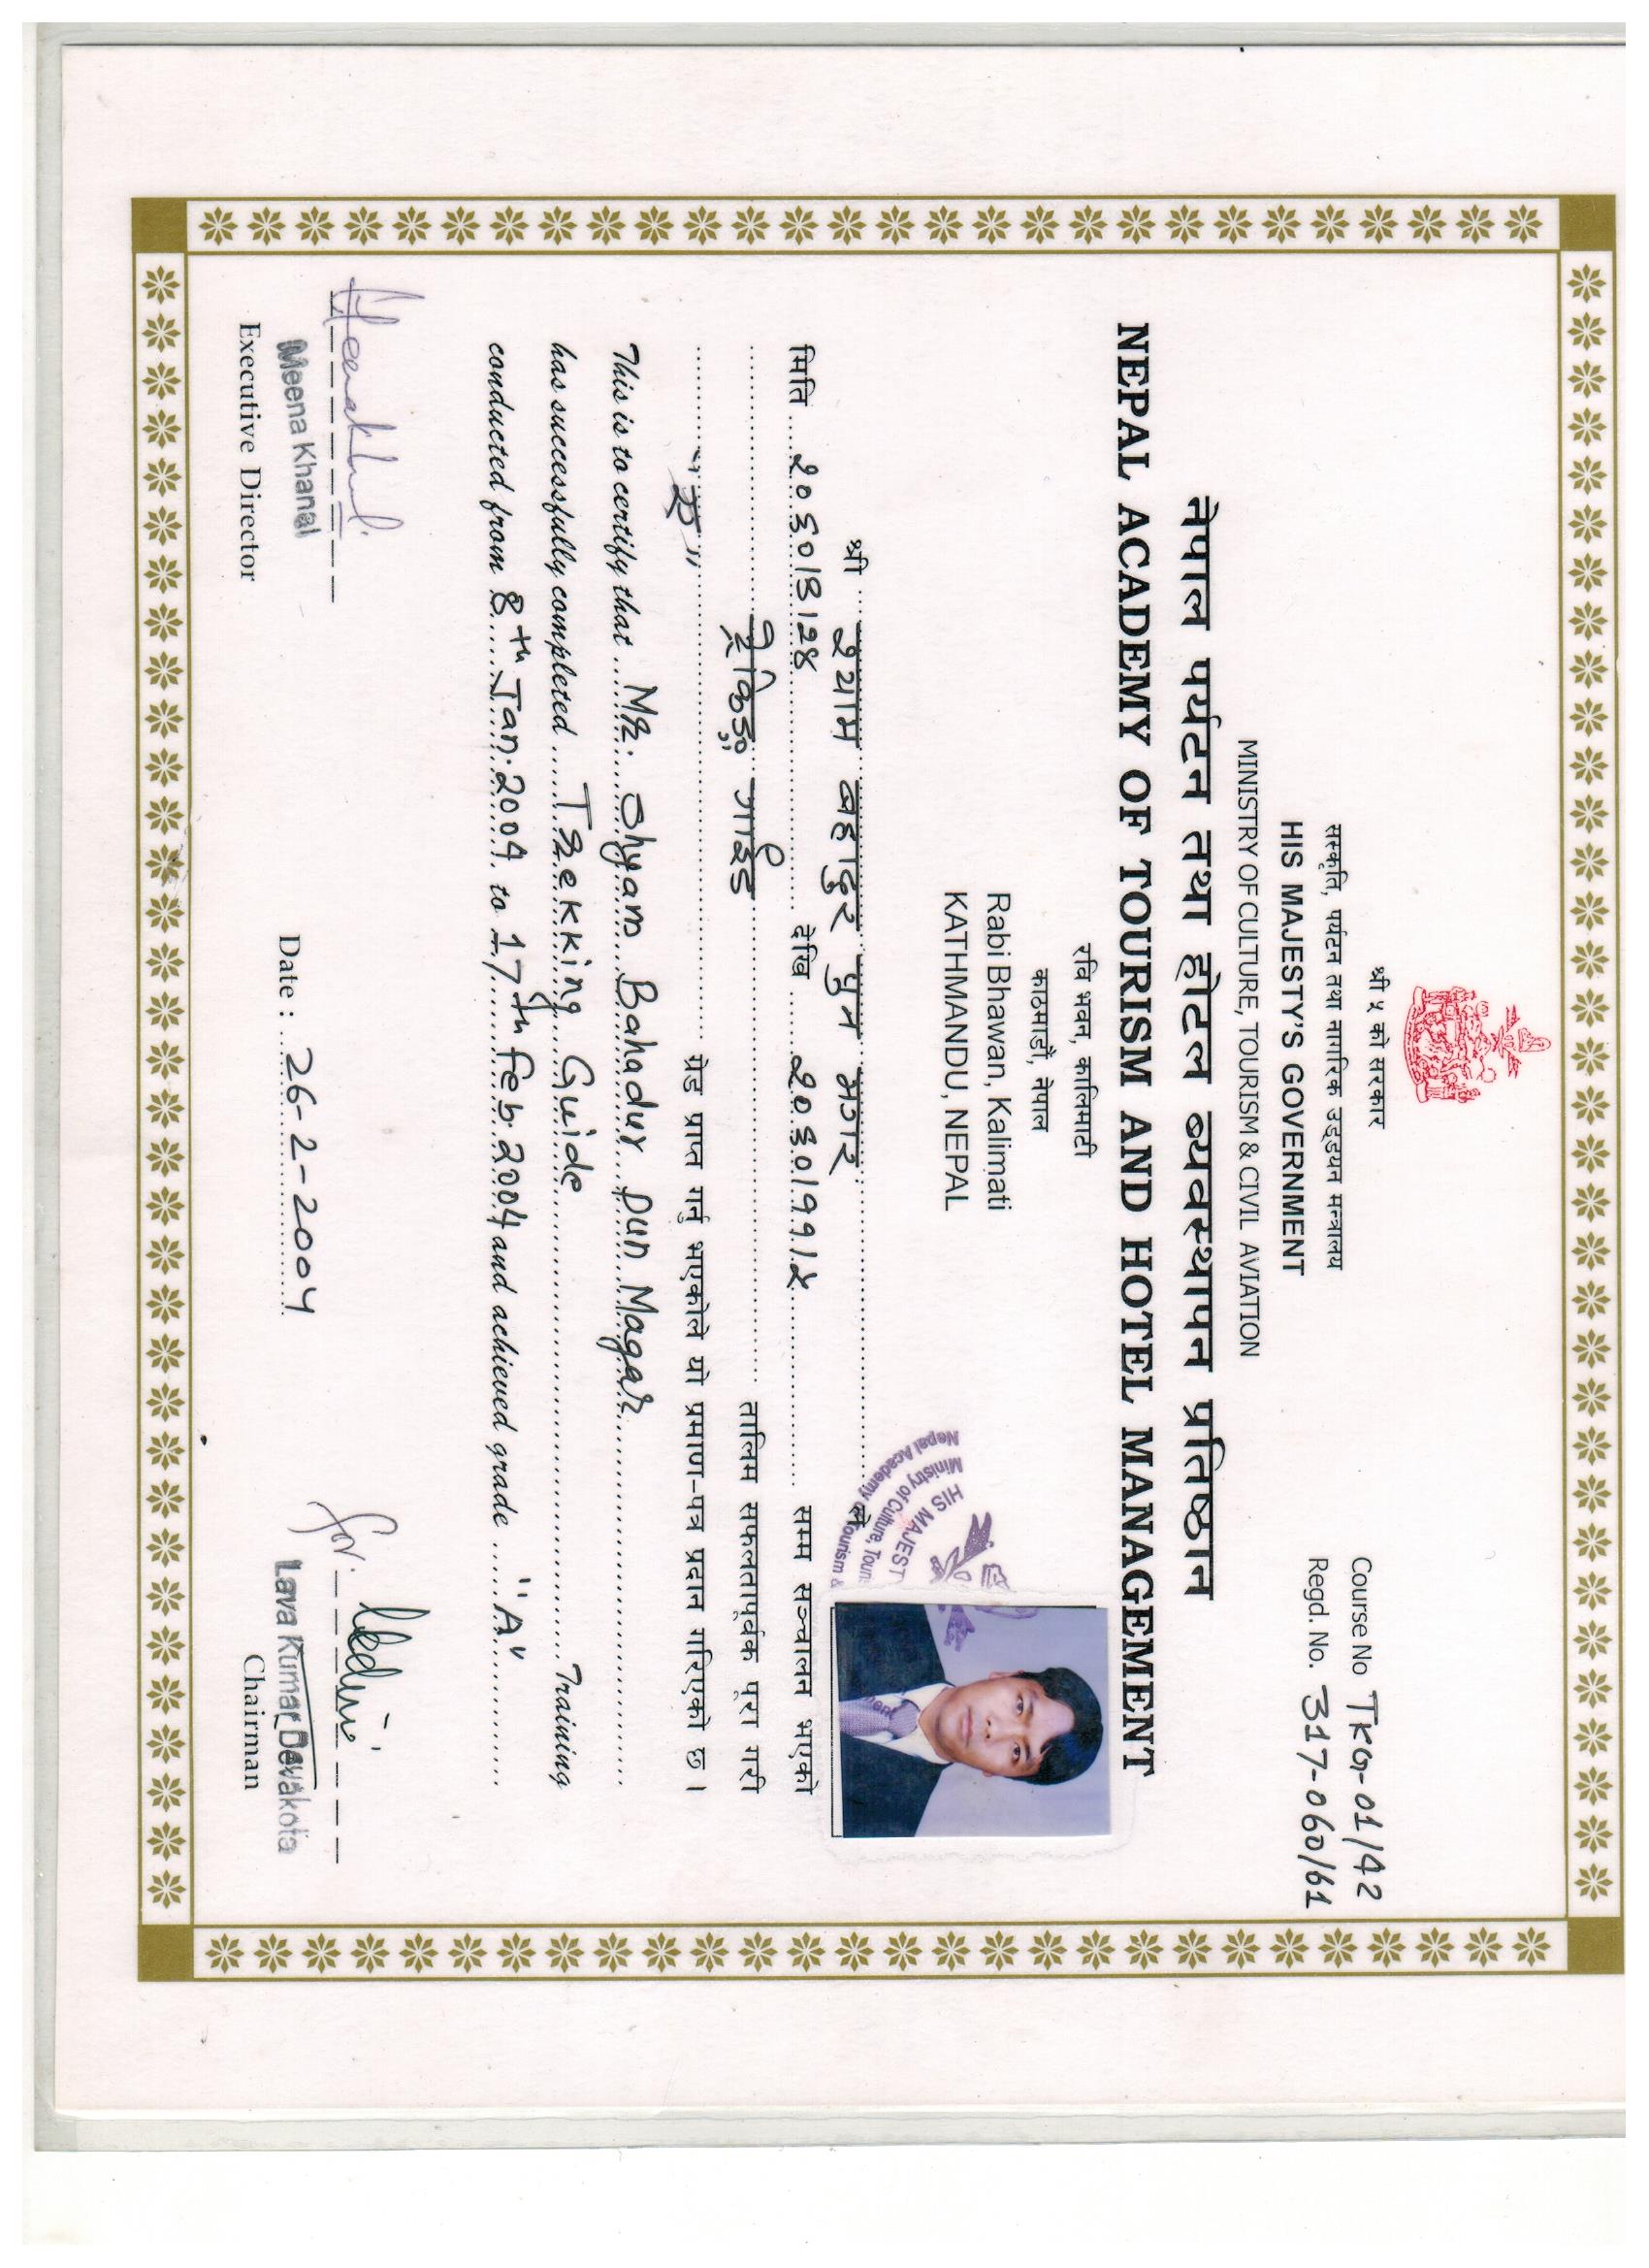 श्री ५ को सरकार
सस्कृति, पर्यटन तथा नागरिक उड्डयन मन्त्रालय
HIS MAJESTY'S GOVERNMENT
MINISTRY OF CULTURE, TOURISM & CIVIL AVIATION
Course No TKG-01/42
Regd. No. 317-060/61
नेपाल पर्यटन तथा होटल ब्यवस्थापन प्रतिष्ठान
NEPAL ACADEMY OF TOURISM AND HOTEL MANAGEMENT
रवि भवन, कालिमाटी
काठमाडौं, नेपाल
Rabi Bhawan, Kalimati
KATHMANDU, NEPAL
HIS MAJEST
Ministry of Culture, Touris
Nepal Academy of Tourism &
श्री श्याम बहादुर पुन मगर ले
मिति २०६०।९।२४ देखि २०६०।११।५ सम्म सञ्चालन भएको
ट्रेकिङ्ग गाईड तालिम सफलतापूर्वक पूरा गरी
"ए" ग्रेड प्राप्त गर्नु भएकोले यो प्रमाण-पत्र प्रदान गरिएको छ ।
This is to certify that Mr. Shyam Bahadur Pun Magar
has successfully completed Trekking Guide Training
conducted from 8th Jan. 2004 to 17th Feb. 2004 and achieved grade "A"
for.
Meena Khanal
Executive Director
Date : 26-2-2004
Lava Kumar Devakota
Chairman